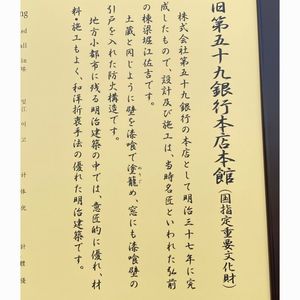 旧第五十九銀行本店本館(国指定重要文化財)
株式会社第五十九銀行の本店として明治三十七年に完
成したもので、設計及び施工は、当時名匠といわれた弘前
の棟梁堀江佐吉です。
土蔵と同じように壁を漆喰で塗籠め、窓にも漆喰壁の
引戸を入れた防火構造です。
地方小都市に残る明治建築の中では、意匠的に優れ、材
料・施工もよく、和洋折衷手法の優れた明治建築です。